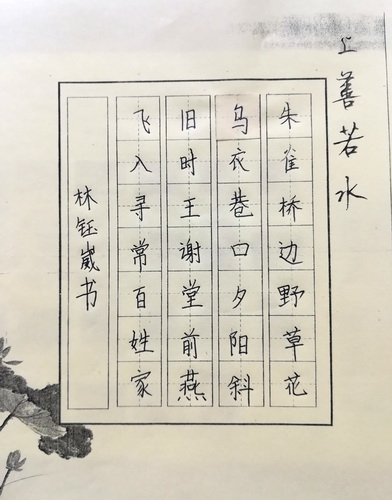 上善若水
朱雀桥边野草花
乌衣巷口夕阳斜
旧时王谢堂前燕
飞入寻常百姓家
林钰崴书